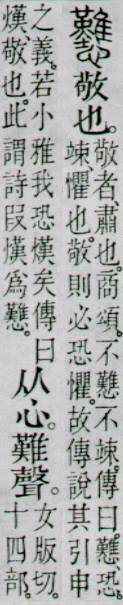 戁敬也。
敬者、肅也。商頌。不戁不竦。傳曰。戁恐
竦、懼也。敬則必恐懼。故傳說其引申
之義。若小雅我恐熯矣傳曰
熯敬也。此謂詩叚熯爲戁。
从心。難聲。
女版切。
十四部。